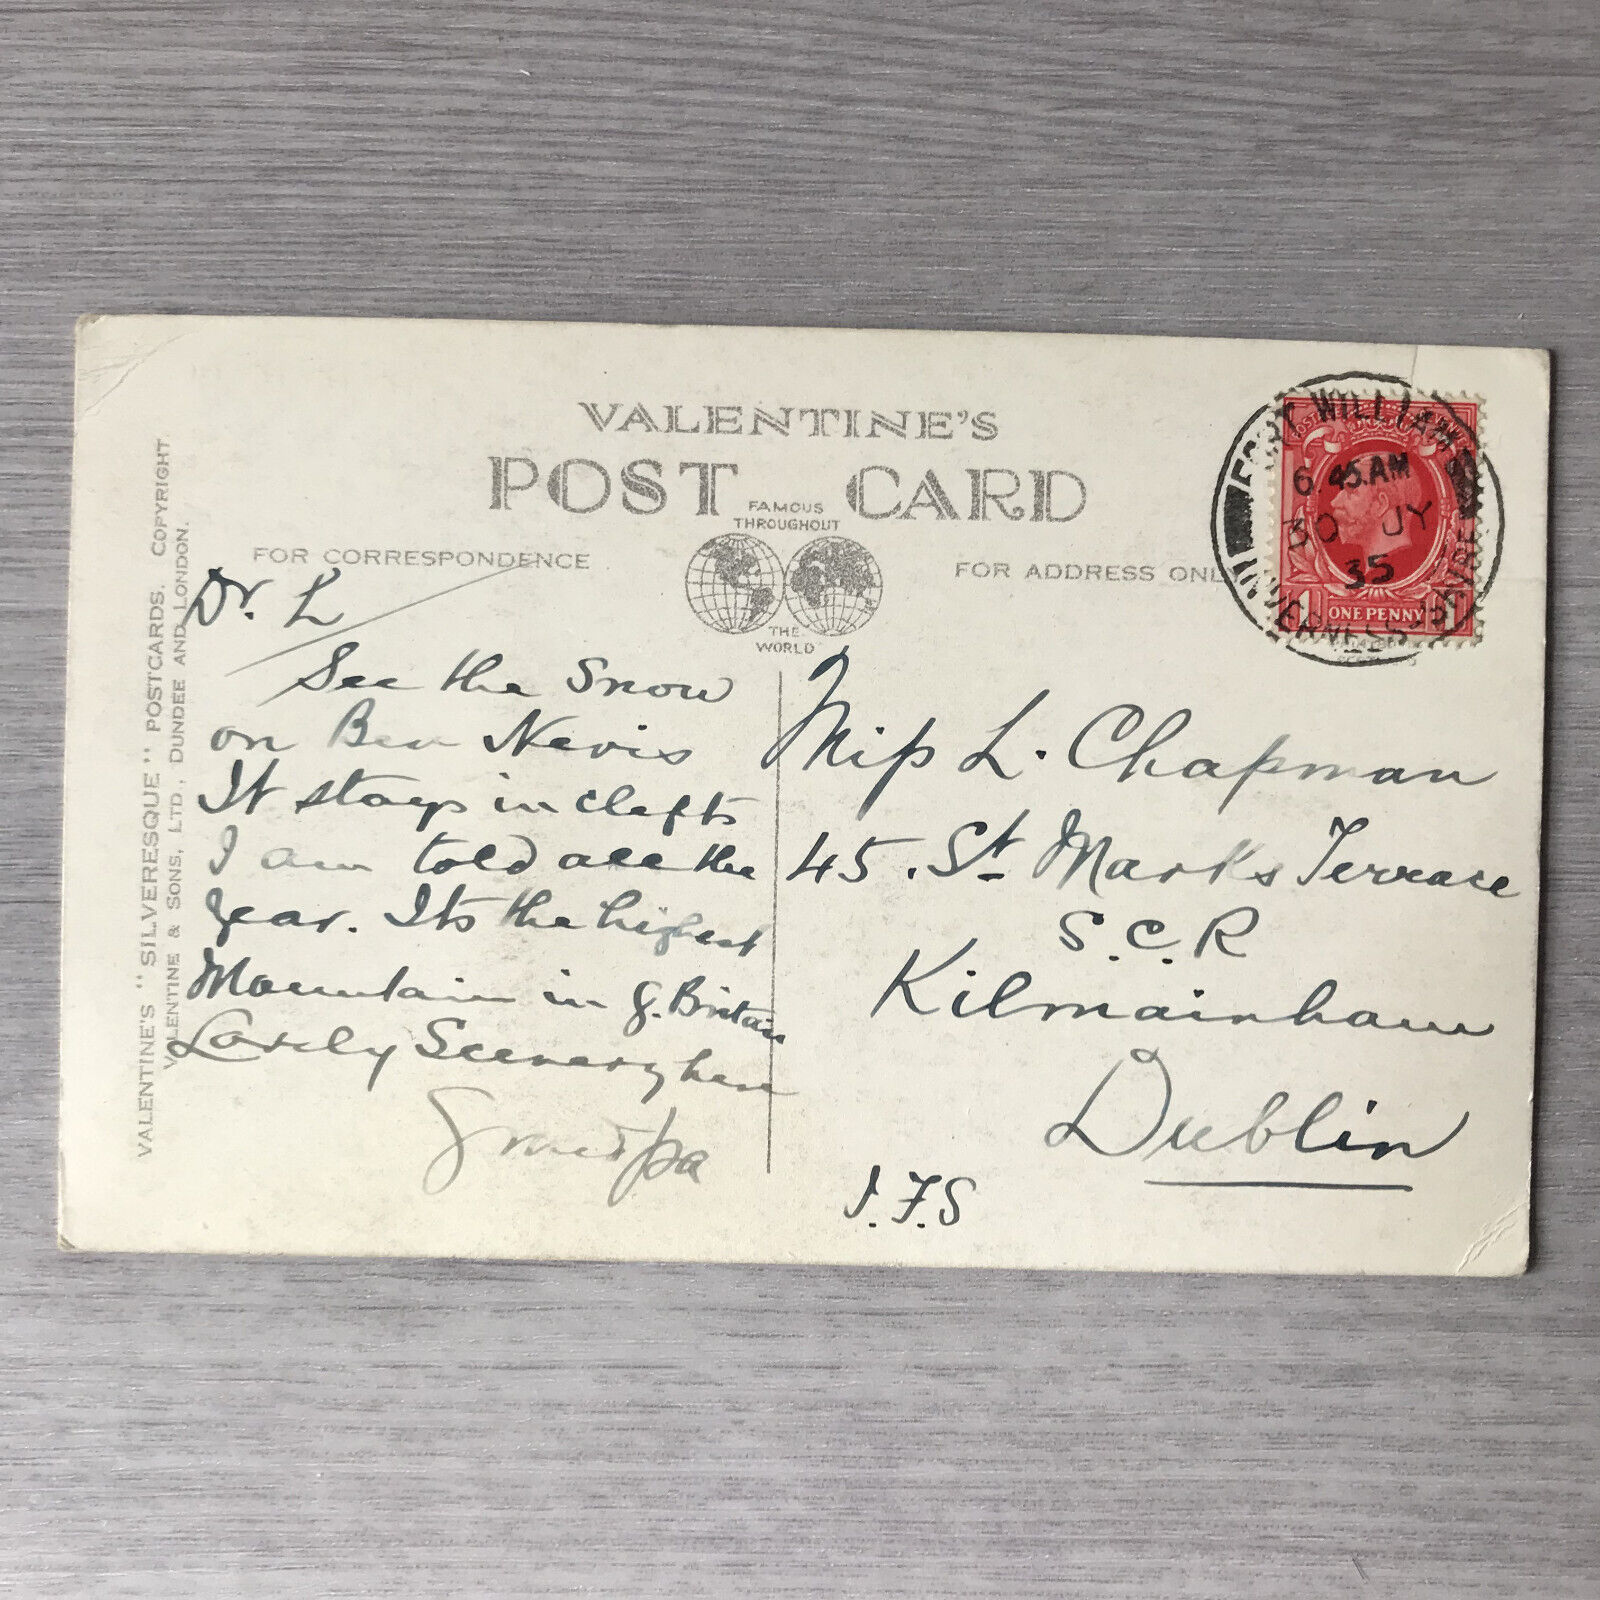 VALENTINE'S
POST CARD
FAMOUS
THROUGHOUT
THE
WORLD
FOR CORRESPONDENCE
FOR ADDRESS ONL
VALENTINE'S "SILVERESQUE" POSTCARDS. COPYRIGHT
VALENTINE & SONS, LTD., DUNDEE AND LONDON.
Dr. L
See the Snow
on Ben Nevis
It stays in clefts
I am told all the
year. Its the highest
Mountain in G. Britain
Lovely Scenery here
Grandpa
FORT WILLIAM
6 45.AM
30 JY
35
INVERNESS-SHIRE
ONE PENNY
Miss L. Chapman
45. St Marks Terrace
S.C.R
Kilmainham
Dublin
I.F.S